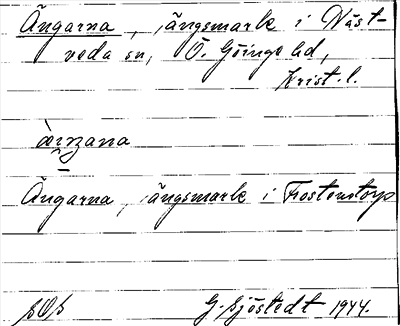 Ängarna, ängsmark i Väst-
veda sn, Ö. Göinge hd,
Krist. l.
Ängarna, ängsmark i Frostentorp
G. Sjöstedt 1944.